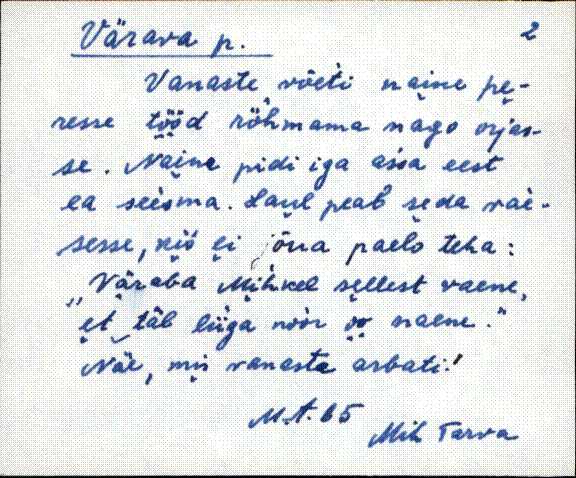 Värava p. 2
Vanaste võeti naine pe-
resse tööd rõhmama nago orjas-
se. Naine pidi iga assa eest
ea seisma. Laul peab seda vai-
sesse, kiš ei õna paelo teha:
"Väraba Mihkel sellest vaene,
et täl liiga noor oo naene."
Näe, mis vanasta arbati!
M.T. 65
Mih Tarva